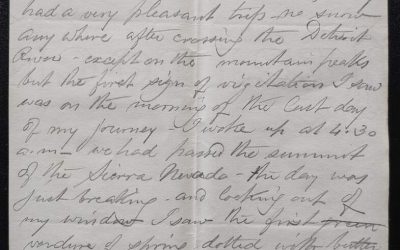 had a very pleasant trip - no snow
any where after crossing the Detroit
River - except on the mountain peaks
but the first sign of vigitation I saw
was on the morning of the last day
of my journey - I woke up at 4:30
a.m - we had passed the summit
of the Sierra Nevada - the day was
just breaking - and looking out of
my window I saw the first green
verdure of spring dotted with